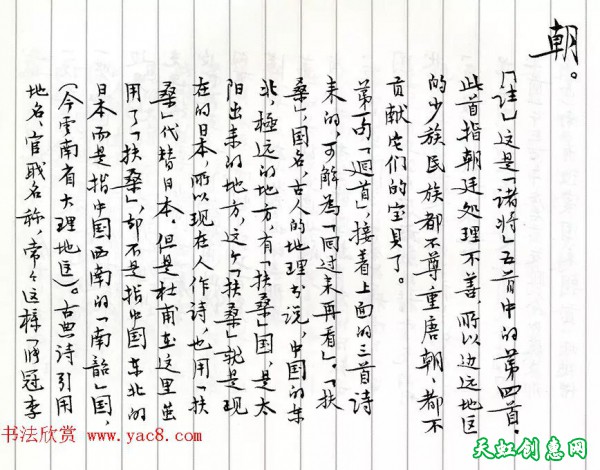 朝。
「注」这是「诸将」五首中的第四首。
此首指朝廷处理不善，所以边远地区
的少族民族都不尊重唐朝、都不
贡献它们的宝贝了。
第一句「廻首」，接着上面的三首诗
来的，可解為「回过来再看」。「扶
桑」，国名，古人的地理书说，中国的东
北，極远的地方，有「扶桑」国，是太
阳出来的地方，这个「扶桑」就是现
在的日本，所以现在人作诗，也用「扶
桑」代替日本。但是杜甫在这里虽
用了「扶桑」，却不是指中国东北的
日本而是指中国西南的「南韶」国，
（今雲南省大理地区）。古典诗引用
地名、官职名称，常々这樣「张冠李
书法欣赏 www.yac8.com
天虹创意网